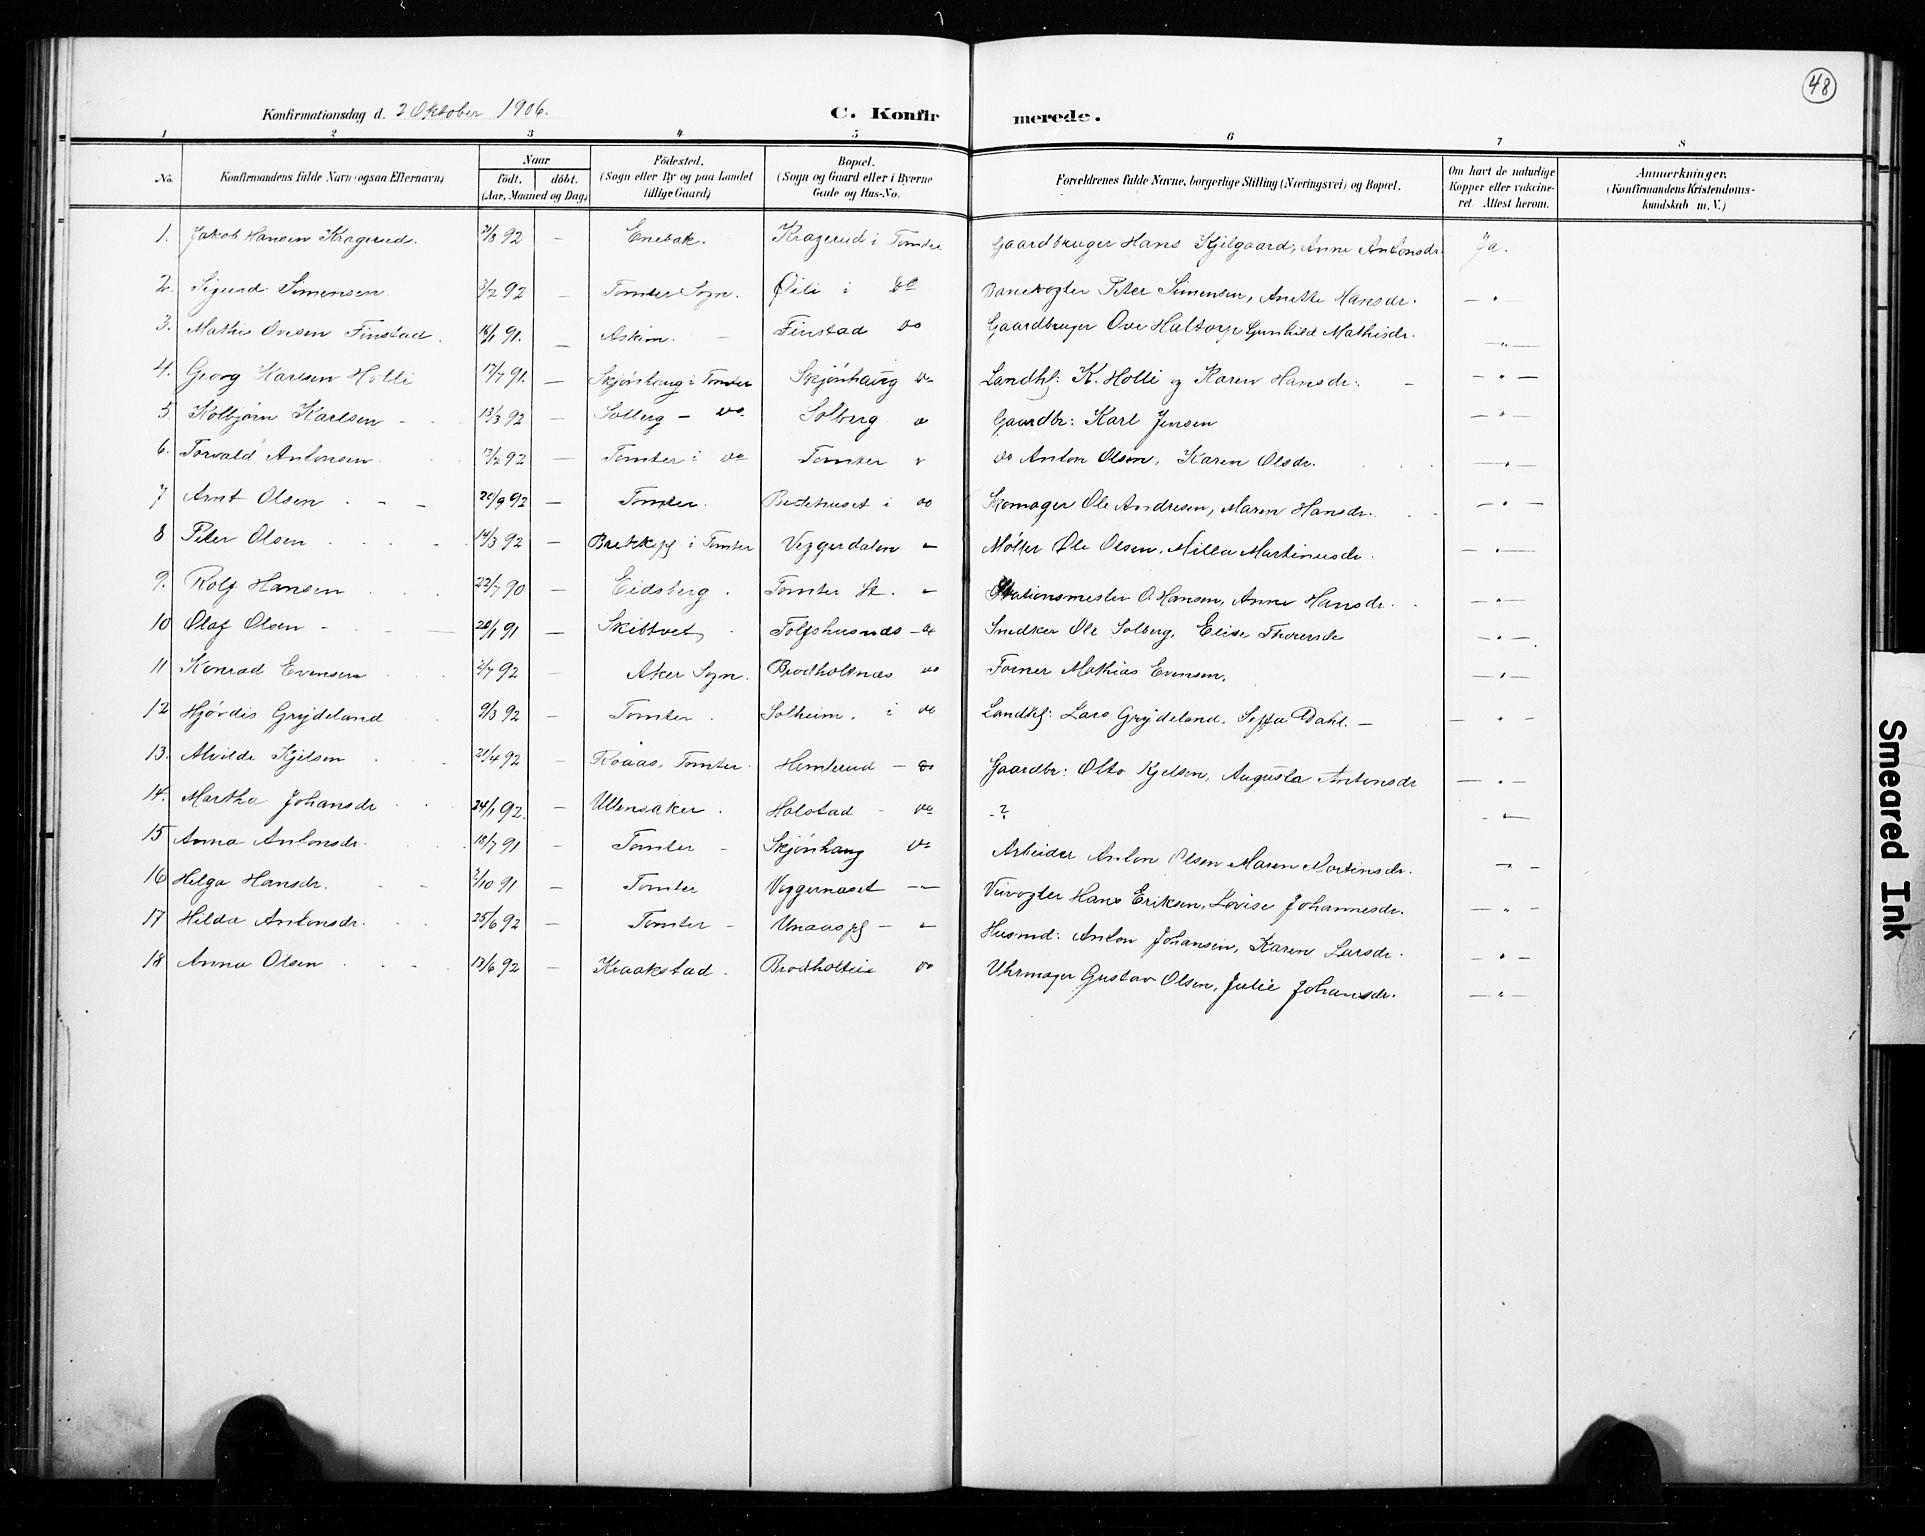 48
Konfirmationsdag d. 2 Oktober 1906. C. Konfirmerede.
1 2 3 4 5 6 7 8
No. Konfirmandens fulde Navn (ogsaa Efternavn) Naar födt. döbt. (Aar, Maaned og Dag) Födested. (Sogn eller By og paa Landet tillige Gaard) Bopæl. (Sogn og Gaard eller i Byerne Gade og Hus-No. Forældrenes fulde Navne, borgerlige Stilling (Næringsvei) og Bopæl. Om havt de naturlige Kopper eller vakcineret. Attest herom. Anmærkninger. (Konfirmandens Kristendomskundskab m. V.)
1. Jakob Hansen Kragerud. /8 92 — Enebak. Kragerud i Tomter Gaardbruger Hans Kjelgaard, Anne Antonsdr. Ja.
2. Sigurd Simensen 3/2 92 — Tomter Sogn. Øili i do Banevogter Peter Simensen, Anette Hansdr. — " —
3. Mathis Ovesen Finstad. 16/1 91. — Askim. — Finstad do Gaardbruger Ove Haltorp Gunhild Mathisdr. — " —
4. Georg Karlsen Holli 17/7 91. — Skjønhaug i Tomter Skjønhaug do Landhl: K. Holli og Karen Hansdr. — — " —
5. Kolbjørn Karlsen 13/3 92 — Solberg — do. Solberg do Gaardbr: Karl Jensen — " —
6. Torvald Antonsen 17/2 92 — Tomter i do Tomter do Anton Olsen, Karen Olsdr. — " —
7 Arnt Olsen 20/9 92 — Tomter. Bedehuset i do Skomager Ole Andresen, Maren Hansdr. — " —
8 Peter Olsen 14/3 92 — i Tomter Veggerdalen — Møller Ole Olsen, Milla Martinusdr. — " —
9. Rolf Hansen 22/7 90 — Eidsberg. Tomter St. — Stationsmester O. Hansen, Anne Hansdr. — " —
10 Olaf Olsen 20/1 91 — Skibtvet Tolfshusnæs — do Snedker Ole Solberg, Elise — " —
11 Konrad Evensen 2/7 92 — Aker Sogn. Brodholtnæs do Mathias Evensen. — " —
12 Hjørdis Grydeland 9/3 92 — Tomter. Solheim. i do Landhl: Lars Grydeland, Dahl. — — " —
13. Alvilde Kjelsen 21/4 92 — Roaas, Tomter. Hemterud — do Gaardbr: Otto Kjelsen, Augusta Antonsdr — " —
14. Martha Johansdr 24/1 92. — Ullensaker. Holstad — do — ? — " —
15 Anna Antonsdr. 18/7 91 — Tomter — Skjønhaug do Arbeider Anton Olsen Maren Martinsdr. — " —
16 Helga Hansdr. 2/10 91 — Tomter Veggernæset — — Veivogter Hans Eriksen, Lovise Johannesdr. — " —
17 Hilda Antonsdr. 25/6 92 — Tomter — — — Husmd: Anton Johansen, Karen Larsdr. — " —
18 Anna Olsen 13/6 92 — Kraakstad. Brodholteie do Uhrmager Gustav Olsen, Julie Johansdr. — " —
Smeared Ink